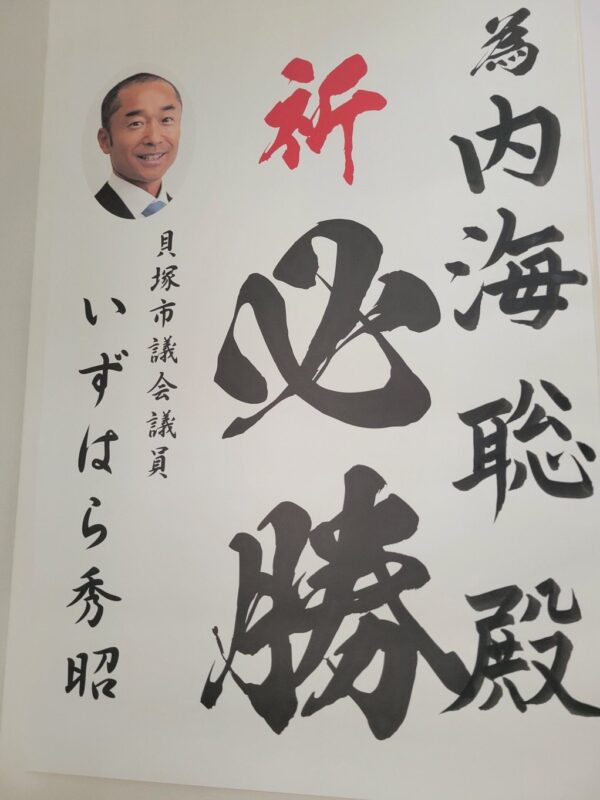 為内海聡殿
祈
必勝
貝塚市議会議員
いずはら秀昭